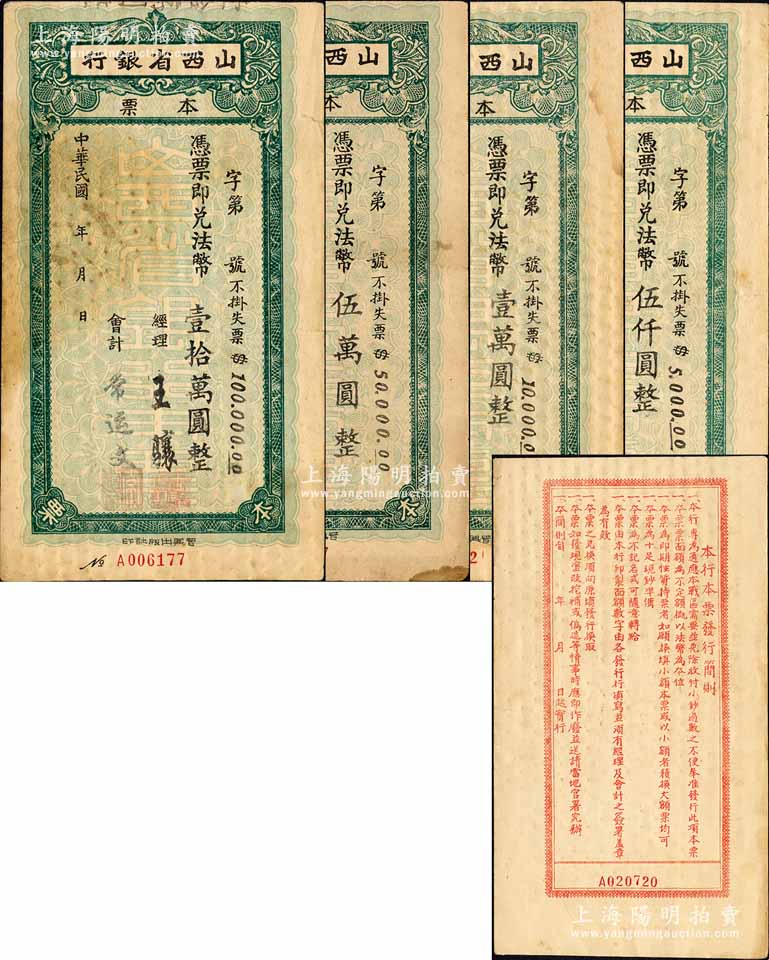 上海陽明拍賣
www.yangmingauction.com
行銀省西山
票本
字第 號不掛失票 每100,000.00
憑票即兌法幣壹拾萬圓整
經理 王驤
會計 常運文
中華民國 年 月 日
本
票
晉興出版社印
№ A006177
山西
本
字第 號不掛失票 每50,000.00
憑票即兌法幣伍萬圓整
本
山西
本
字第 號不掛失票 每10,000.0
憑票即兌法幣壹萬圓整
山西
本
字第 號不掛失票 每5,000.00
憑票即兌法幣伍仟圓整
上海陽明拍賣
www.yangmingauction.com
本行本票發行簡則
一本行專為適應本戰區需要並免除收付小鈔過數之不便奉准發行此項本票
一本票票面額為不定額概以法幣為本位
一本票為即期性質持票者如願換填小額本票或以小額者積換大額票均可
一本票為十足現鈔準備
一本票為不記名式可隨意轉給
一本票由本行印製面額數字由各發行行填寫並須有經理及會計之簽署蓋章
為有效
一本票之兌換須向原填發行換取
一本票如發現塗改挖補或偽造等情事時應即作廢並送請當地官署究辦
一本簡則自 年 月 日起實行
A020720
上海陽明拍賣
www.yangmingauction.com